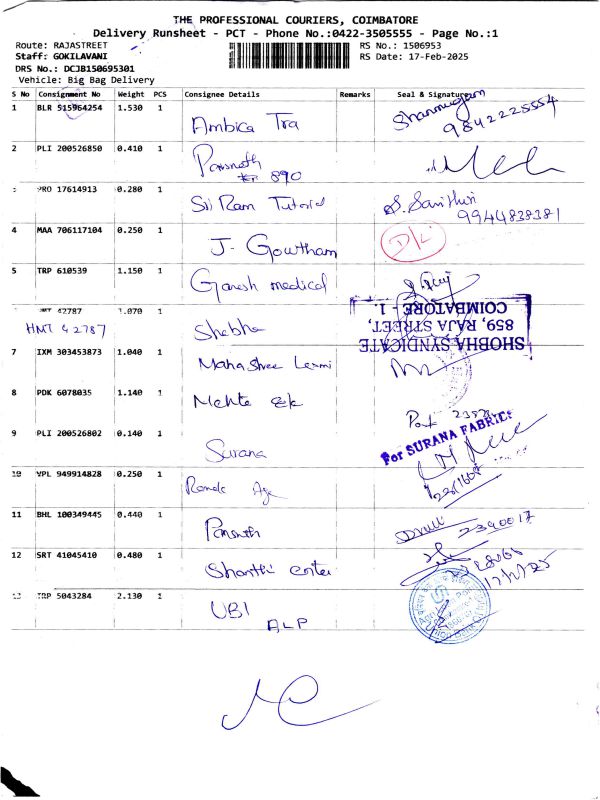 THE PROFESSIONAL COURIERS, COIMBATORE
Delivery Runsheet - PCT - Phone No.:0422-3505555 - Page No.:1
Route: RAJASTREET RS No.: 1506953
Staff: GOKILAVANI RS Date: 17-Feb-2025
DRS No.: DCJB150695301
Vehicle: Big Bag Delivery
S No Consignment No Weight PCS Consignee Details Remarks Seal & Signature
1 BLR 515964254 1.530 1 Ambica Tra Shanmugam
9842225554
2 PLI 200526850 0.410 1 Parsnath
890
3 PRO 17614913 0.280 1 Sri Ram Tutorial S. Savithiri
9944838381
4 MAA 706117104 0.250 1 J. Gowtham D/L
5 TRP 610539 1.150 1 Ganesh medical
HMT 42787 1.070 1 Shobha
HMT 42787
SHOBHA SYNDICATE
859, RAJA STREET,
COIMBATORE - 1.
7 IXM 303453873 1.040 1 Mahashree Laxmi
8 PDK 6078035 1.140 1 Mehta
9 PLI 200526802 0.140 1 Surana
For SURANA FABRICS
10 VPL 949914828 0.250 1
11 BHL 100349445 0.440 1 Parsnath 2390017
12 SRT 41045410 0.480 1 Shanthi enter
13 TRP 5043284 2.130 1 UBI
ALP
Union Bank